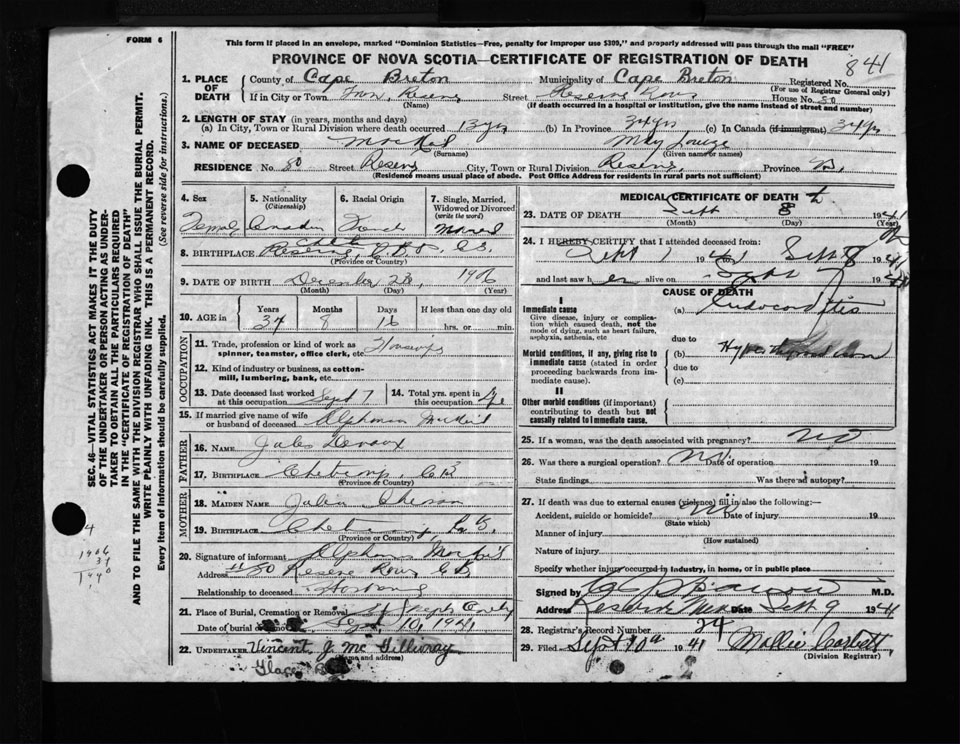 FORM 6
This form if placed in an envelope, marked "Dominion Statistics—Free, penalty for improper use $300," and properly addressed will pass through the mail "FREE"
PROVINCE OF NOVA SCOTIA—CERTIFICATE OF REGISTRATION OF DEATH
841
1. PLACE OF DEATH
County of Cape Breton Municipality of Cape Breton Registered No.
(For use of Registrar General only)
If in City or Town Reserve Street Reserve Rows House No. 80
(Name) (If death occurred in a hospital or institution, give the name instead of street and number)
2. LENGTH OF STAY (in years, months and days)
(a) In City, Town or Rural Division where death occurred 13 yrs (b) In Province 34 yrs (c) In Canada (if immigrant) 34 yrs
3. NAME OF DECEASED May Louise
(Surname) (Given name or names)
RESIDENCE No. 80 Street Reserve City, Town or Rural Division Reserve Province
(Residence means usual place of abode. Post Office Address for residents in rural parts not sufficient)
4. Sex 5. Nationality (Citizenship) 6. Racial Origin 7. Single, Married, Widowed or Divorced (write the word)
Female Canadian French Married
8. BIRTHPLACE Reserve, C.B.
(Province or Country)
9. DATE OF BIRTH December 23, 1906
(Month) (Day) (Year)
10. AGE in Years Months Days If less than one day old
34 8 16 hrs. or min.
OCCUPATION
11. Trade, profession or kind of work as spinner, teamster, office clerk, etc.
12. Kind of industry or business, as cotton-mill, lumbering, bank, etc.
13. Date deceased last worked at this occupation Sept 7 14. Total yrs. spent in this occupation
15. If married give name of wife or husband of deceased
FATHER
16. NAME
17. BIRTHPLACE Cheticamp C.B
(Province or Country)
MOTHER
18. MAIDEN NAME
19. BIRTHPLACE
(Province or Country)
20. Signature of informant
Address 80 Reserve Rows C B
Relationship to deceased Husband
21. Place of Burial, Cremation or Removal St Joseph
Date of burial Sept 10, 1941
22. UNDERTAKER Vincent J. McGillivray
(Name and address)
Glace Bay
MEDICAL CERTIFICATE OF DEATH
23. DATE OF DEATH Sept 8 th 1941
(Month) (Day) (Year)
24. I HEREBY CERTIFY that I attended deceased from:
Sept 1 1941 Sept 8 1941
and last saw her alive on Sept 7 1941
CAUSE OF DEATH
I
Immediate cause
Give disease, injury or complication which caused death, not the mode of dying, such as heart failure, asphyxia, asthenia, etc
(a) Endocarditis
due to
Morbid conditions, if any, giving rise to immediate cause (stated in order proceeding backwards from immediate cause)
(b)
due to
(c)
II
Other morbid conditions (if important) contributing to death but not causally related to immediate cause.
25. If a woman, was the death associated with pregnancy? NO
26. Was there a surgical operation? NO Date of operation 19
State findings Was there an autopsy?
27. If death was due to external causes (violence) fill in also the following:—
Accident, suicide or homicide? NO Date of injury 19
(State which)
Manner of injury
(How sustained)
Nature of injury
Specify whether injury occurred in industry, in home, or in public place
Signed by M.D.
Address Reserve Mines Date Sept 9 1941
28. Registrar's Record Number 24
29. Filed Sept 10th 1941 Mollie Corbett
(Division Registrar)
SEC. 46—VITAL STATISTICS ACT MAKES IT THE DUTY
OF THE UNDERTAKER OR PERSON ACTING AS UNDERTAKER TO OBTAIN ALL THE PARTICULARS REQUIRED
IN THE "CERTIFICATE OF REGISTRATION OF DEATH"
AND TO FILE THE SAME WITH THE DIVISION REGISTRAR WHO SHALL ISSUE THE BURIAL PERMIT.
WRITE PLAINLY WITH UNFADING INK. THIS IS A PERMANENT RECORD.
Every item of information should be carefully supplied. (See reverse side for instructions.)
4
1906
34
1940